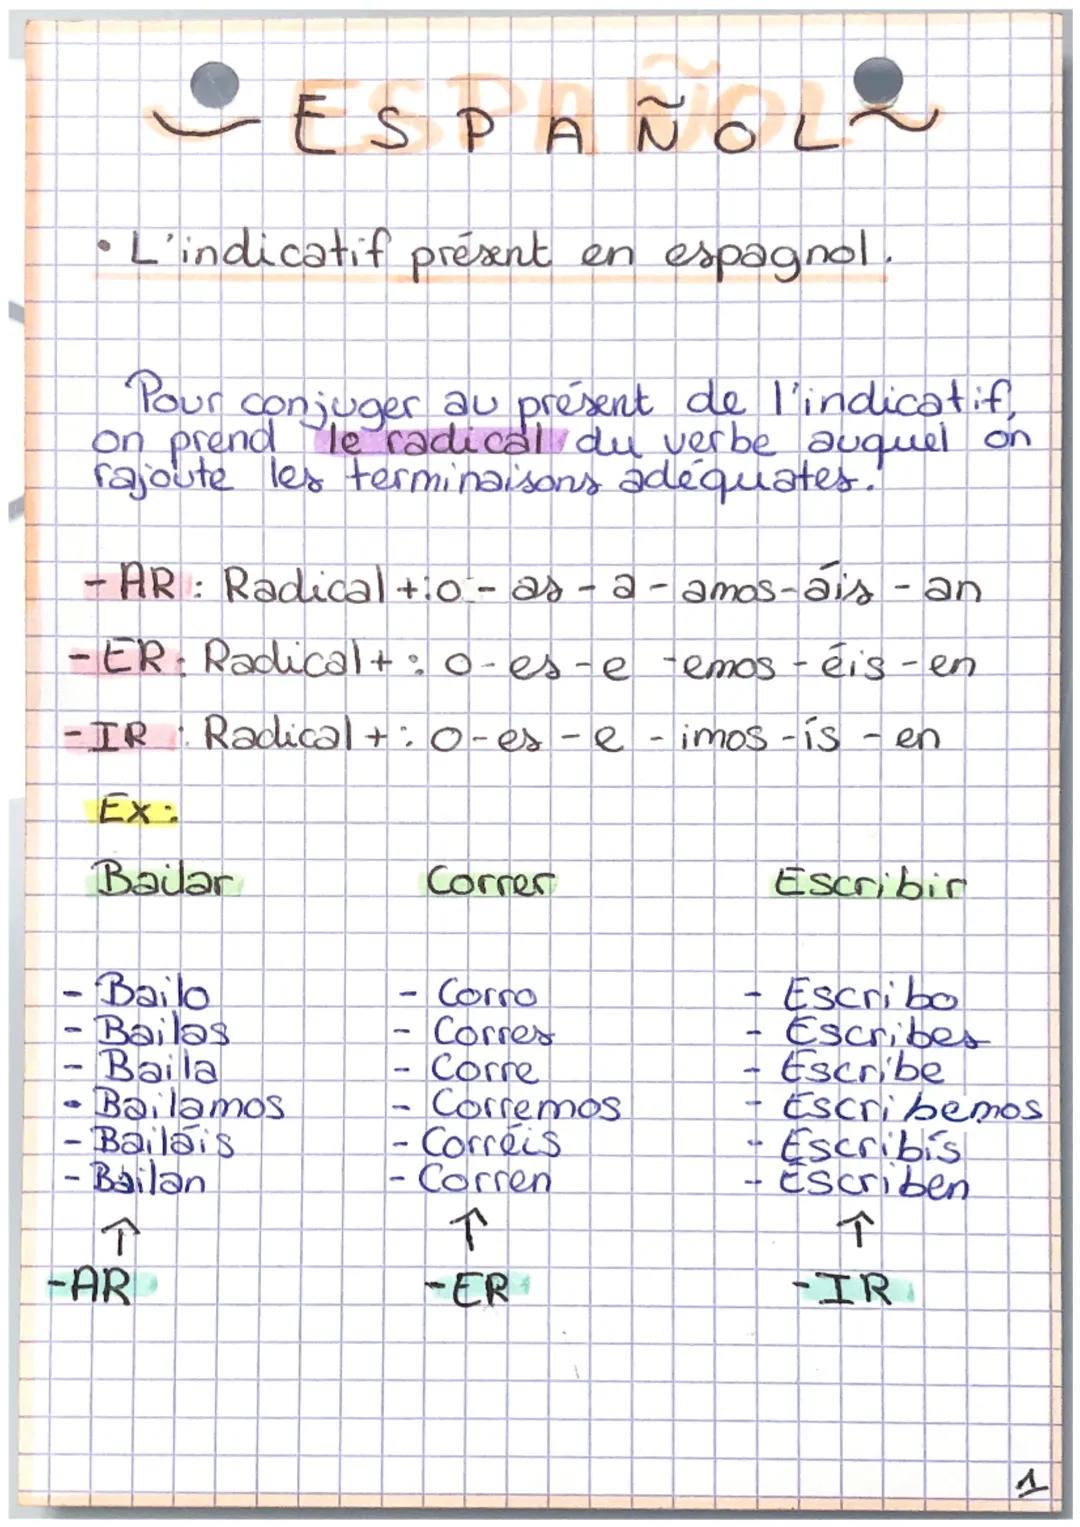 ESPAÑOL
• L'indicatif présent en espagnol.
Pour conjuger au présent de l'indicatif,
on prend le radical du verbe auquel on
rajoute les terminaisons adéquates.
- AR : Radical + : o - as - a - amos - áis - an
- ER : Radical + : o - es - e - emos - éis - en
- IR : Radical + : o - es - e - imos - ís - en
Ex :
Bailar Correr Escribir
- Bailo - Corro - Escribo
- Bailas - Corres - Escribes
- Baila - Corre - Escribe
- Bailamos - Corremos - Escribemos
- Bailáis - Corréis - Escribís
- Bailan - Corren - Escriben
↑ ↑ ↑
-AR -ER -IR
1